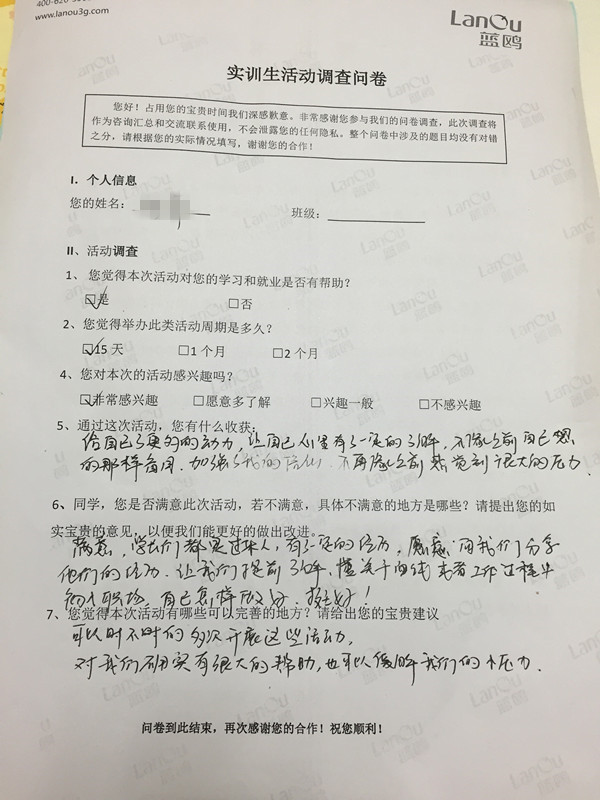 www.lanou3g.com
LanOu
蓝鸥
实训生活动调查问卷
您好！占用您的宝贵时间我们深感歉意。非常感谢您参与我们的问卷调查，此次调查将
作为咨询汇总和交流联系使用，不会泄露您的任何隐私。整个问卷中涉及的题目均没有对错
之分，请根据您的实际情况填写，谢谢您的合作！
I．个人信息
您的姓名：
班级：
II、活动调查
1、 您觉得本次活动对您的学习和就业是否有帮助？
☑是 □否
2、您觉得举办此类活动周期是多久？
☑15 天 □1 个月 □2 个月
4、您对本次的活动感兴趣吗？
☑非常感兴趣 □愿意多了解 □兴趣一般 □不感兴趣
5、通过这次活动，您有什么收获：
给自己了更多的动力，让自己心里有了一定的了解，不像之前自己想
的那样盲目，加强了我的信心，不再像之前感觉到很大的压力
6、同学，您是否满意此次活动，若不满意，具体不满意的地方是哪些？请提出您的如
实宝贵的意见，以便我们能更好的做出改进。
满意，学长们都是过来人，有了一定的经历，愿意向我们分享
他们的经历，让我们提前了解，
自己怎样做好，
7、您觉得本次活动有哪些可以完善的地方？请给出您的宝贵建议
可以时不时的多次开展这些活动，
对我们有很大的帮助，也可以缓解我们的压力．
问卷到此结束，再次感谢您的合作！祝您顺利！